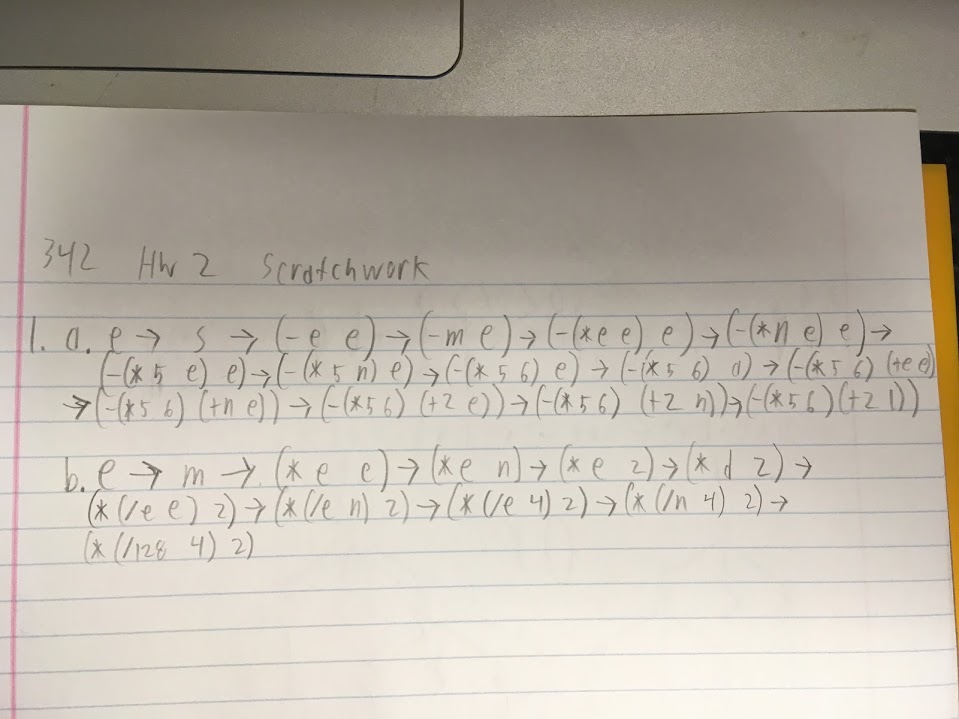 342 HW 2 Scratchwork
1. a. e → s → (- e e) → (- m e) → (-(* e e) e) → (-(* n e) e) →
(-(* 5 e) e) → (-(* 5 n) e) → (-(* 5 6) e) → (-(* 5 6) a) → (-(* 5 6) (+ e e)
→ (-(* 5 6) (+ n e)) → (-(* 5 6) (+ 2 e)) → (-(* 5 6) (+ 2 n)) → (-(* 5 6) (+ 2 1))
b. e → m → (* e e) → (* e n) → (* e 2) → (* d 2) →
(* (/ e e) 2) → (* (/ e n) 2) → (* (/ e 4) 2) → (* (/ n 4) 2) →
(* (/ 128 4) 2)